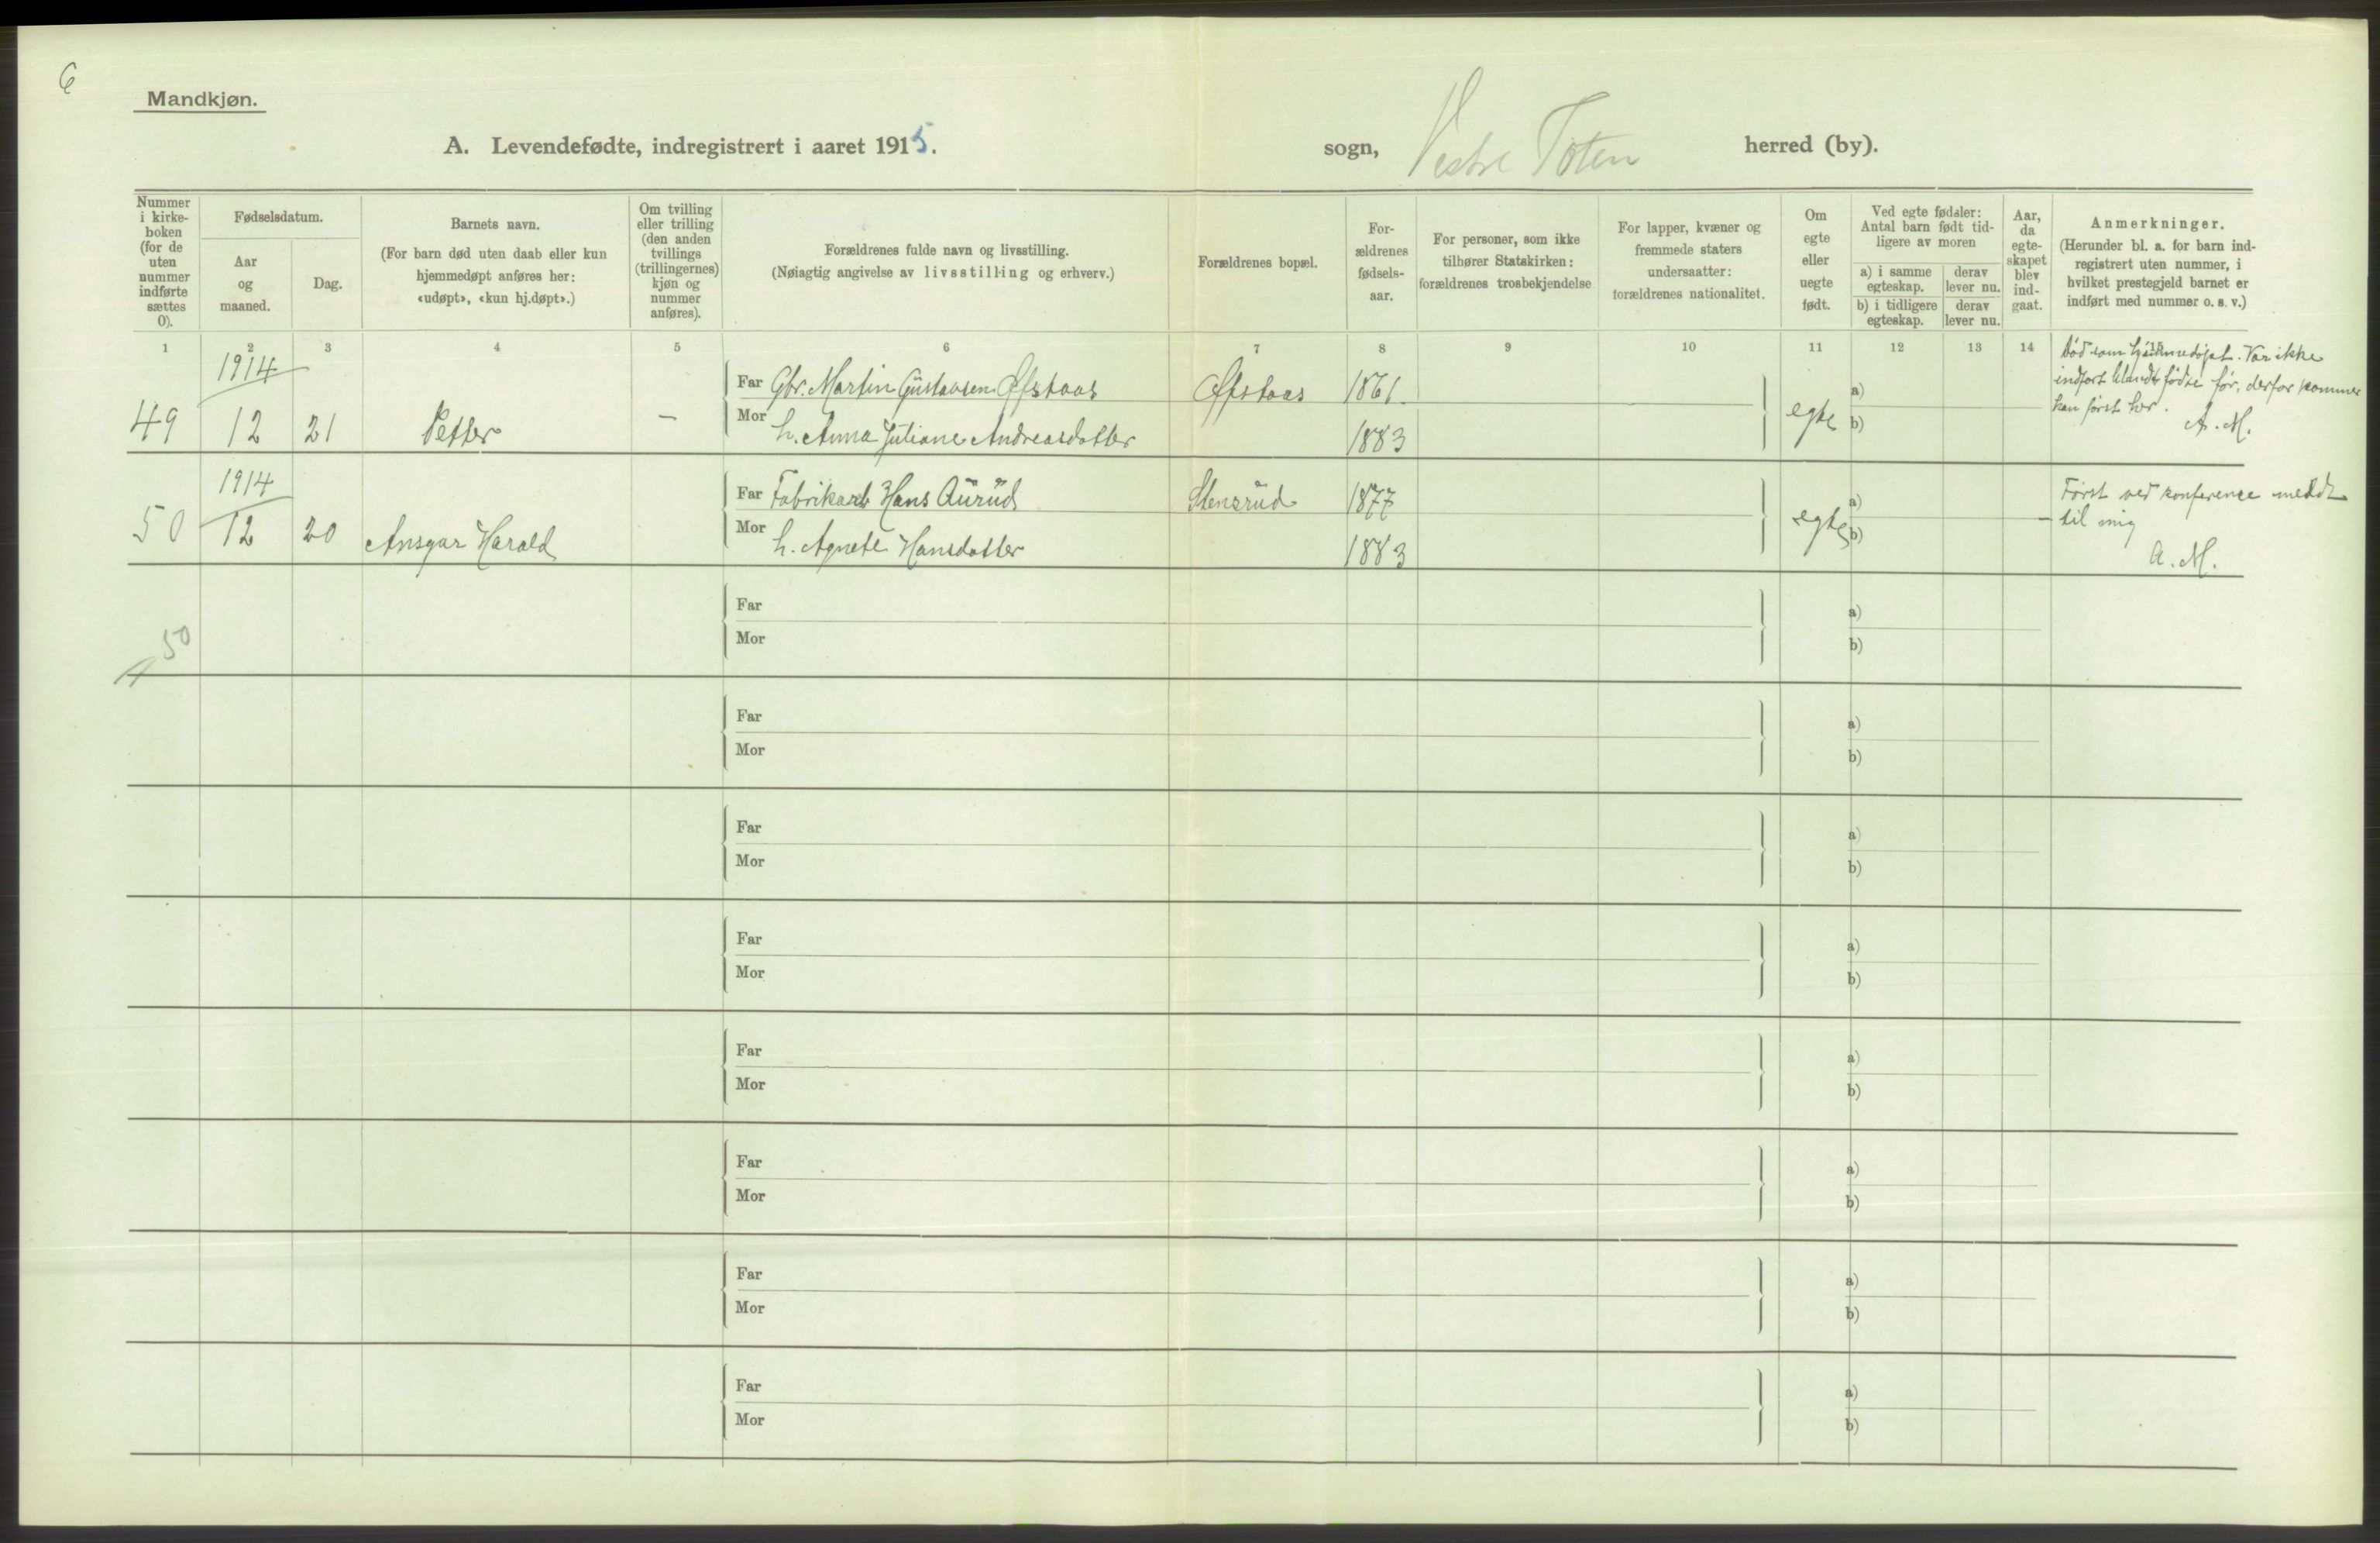 6
Mandkjøn.
A. Levendefødte, indregistrert i aaret 1915. sogn, Vestre Toten herred (by).
Nummer i kirke-boken (for de uten nummer indførte sættes 0).
Fødselsdatum.
Aar og maaned.
Dag.
Barnets navn.
(For barn død uten daab eller kun hjemmedøpt anføres her: «udøpt», «kun hj.døpt».)
Om tvilling eller trilling (den anden tvillings (trillingernes) kjøn og nummer anføres).
Forældrenes fulde navn og livsstilling.
(Nøiagtig angivelse av livsstilling og erhverv.)
Forældrenes bopæl.
For-ældrenes fødsels-aar.
For personer, som ikke tilhører Statskirken: forældrenes trosbekjendelse
For lapper, kvæner og fremmede staters undersaatter: forældrenes nationalitet.
Om egte eller uegte født.
Ved egte fødsler: Antal barn født tid-ligere av moren
a) i samme egteskap.
derav lever nu.
b) i tidligere egteskap.
derav lever nu.
Aar, da egte-skapet blev ind-gaat.
Anmerkninger.
(Herunder bl. a. for barn ind-registrert uten nummer, i hvilket prestegjeld barnet er indført med nummer o. s. v.)
1 2 3 4 5 6 7 8 9 10 11 12 13 14 15
1914
49 12 21 Petter –
Far Gbr. Martin Gustavsen Øfstaas Øfstaas 1861
Mor h. Anna Juliane Andreasdatter 1883
egte a)
b)
Død som hjemmedøpt. Var ikke
indført blandt fødte før, derfor kommer
han først her.
A. M.
1914
50 12 20 Ansgar Harald
Far Fabrikarb Hans Aurud Stensrud 1877
Mor h. Agnete Hansdatter 1883
egte a)
b)
Først ved konference meldt
til mig
A. M.
50
Far a)
Mor b)
Far a)
Mor b)
Far a)
Mor b)
Far a)
Mor b)
Far a)
Mor b)
Far a)
Mor b)
Far a)
Mor b)
Far a)
Mor b)